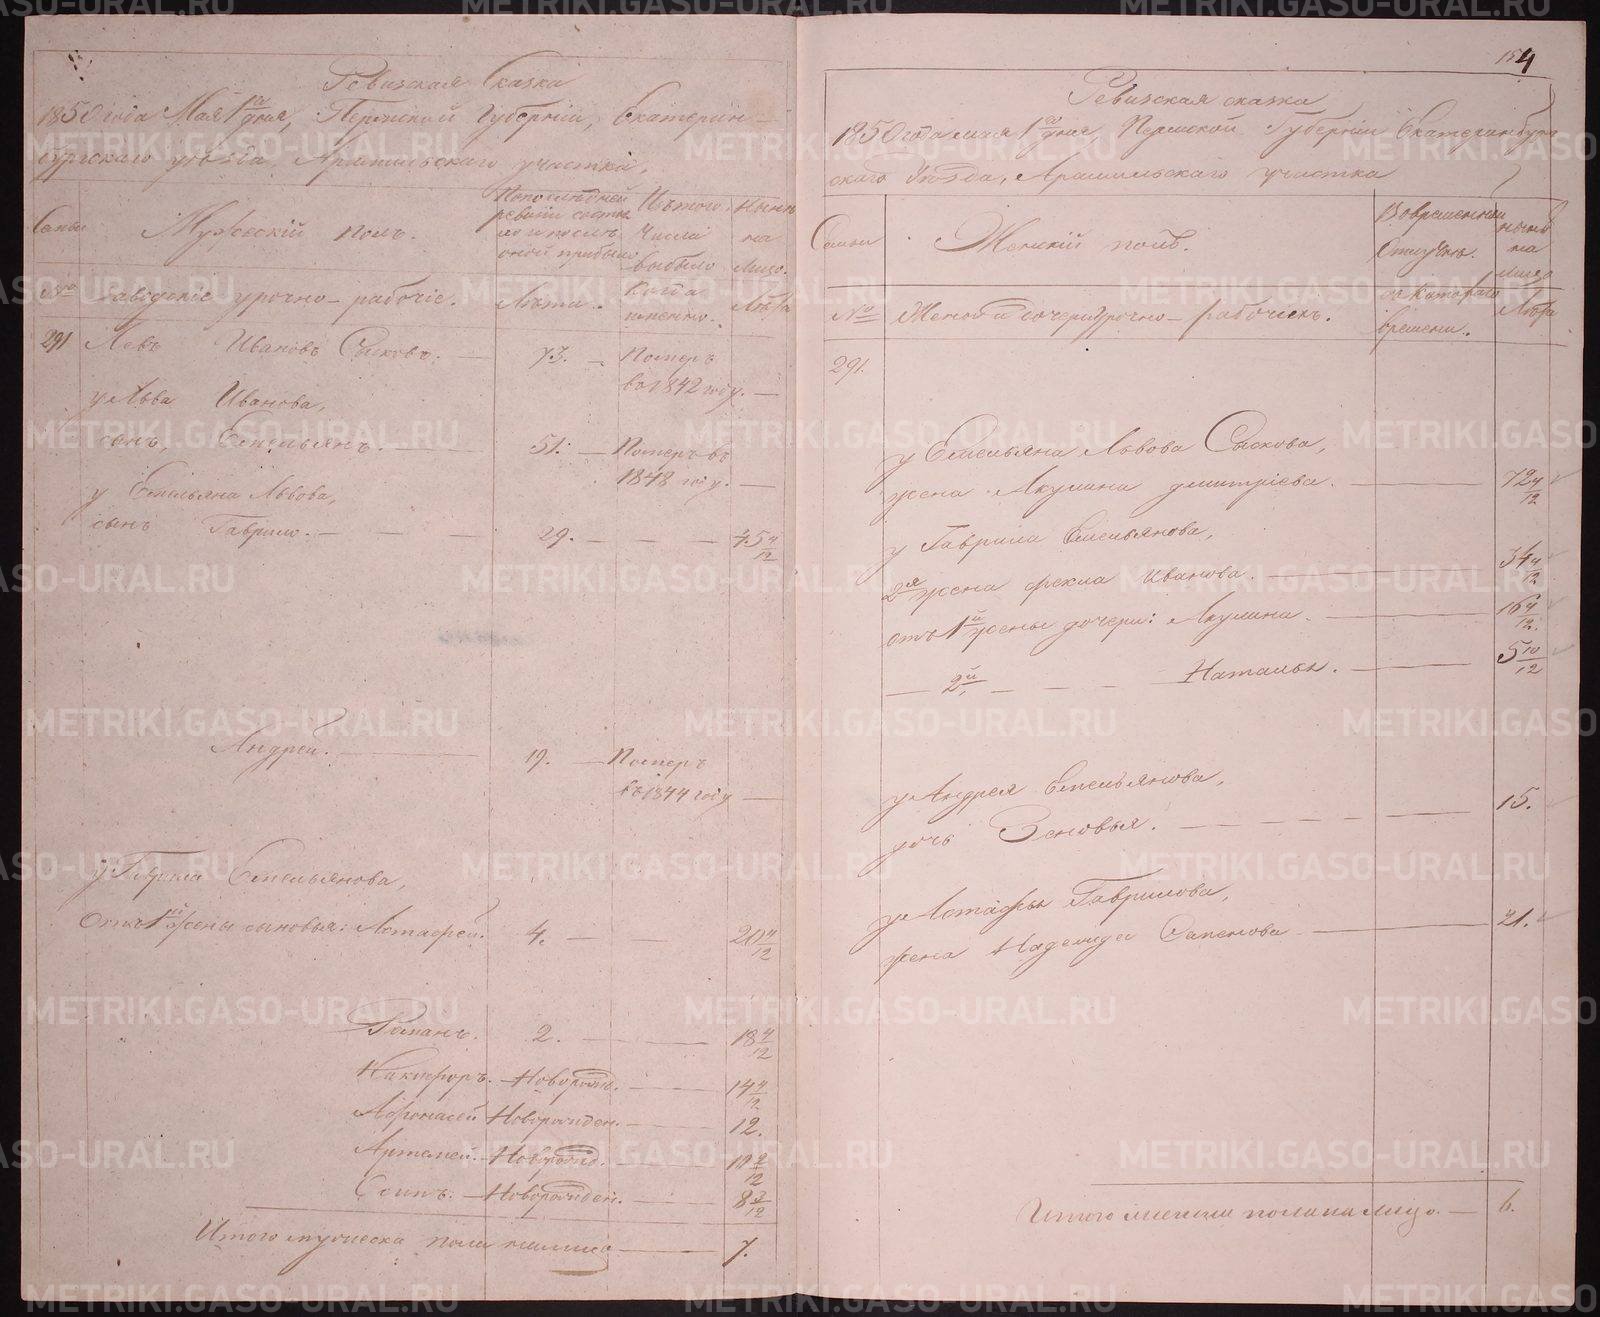 Ревизская Сказка
1850 года Мая 1го дня, Пермской Губерніи, Екатерин-
бургскаго уѣзда, Арамильскаго участка.
Семьи
Мужескій полъ.
По последней ревизіи состояло и послѣ оной прибыло
Изъ того числа выбыло
Нынѣ на лицо.
№
Заводскіе урочно-рабочіе.
Лѣта.
Когда именно.
Лѣта
291 Левъ Ивановъ Сысковъ. 73. Померъ
въ 1842 году.
у Льва Иванова,
сынъ, Емельянъ. 51. Померъ въ
1848 году.
у Емельяна Львова,
сынъ Гаврило. 29. 45 4/12
Андрей. 19. Померъ
въ 1844 году
у Гаврила Емельянова,
Отъ 1й жены сыновья: Астафей. 4. 20 4/12
Романъ. 2. 18 4/12
Никифоръ. Новорожд. 14 4/12
Афонасей Новорожден. 12.
Артемей. Новорожд.
Новорожден. 8 3/12
Итого мужеска пола налицо 7.
154
Ревизская сказка
1850 года мая 1го дня, Пермской Губерніи Екатеринбург
скаго Уѣзда, Арамильскаго участка
Семьи
Женскій полъ.
Во временной отлучкѣ.
Нынѣ на лицо
№
Жены и дочери урочно-рабочихъ.
съ котораго времени.
Лѣта
291.
у Емельяна Львова Сыскова,
жена Акулина Дмитріева. 72 4/12
у Гаврила Емельянова,
2я жена Фекла Иванова. 34 4/12
отъ 1й жены дочери: Акулина. 16 4/12.
2й Наталья. 5 10/12
у Андрея Емельянова,
дочь Зеновья. 15.
у Астафья Гаврилова,
жена Надежда Семенова 21.
Итого женска пола на лицо. 6.
METRIKI.GASO-URAL.RU